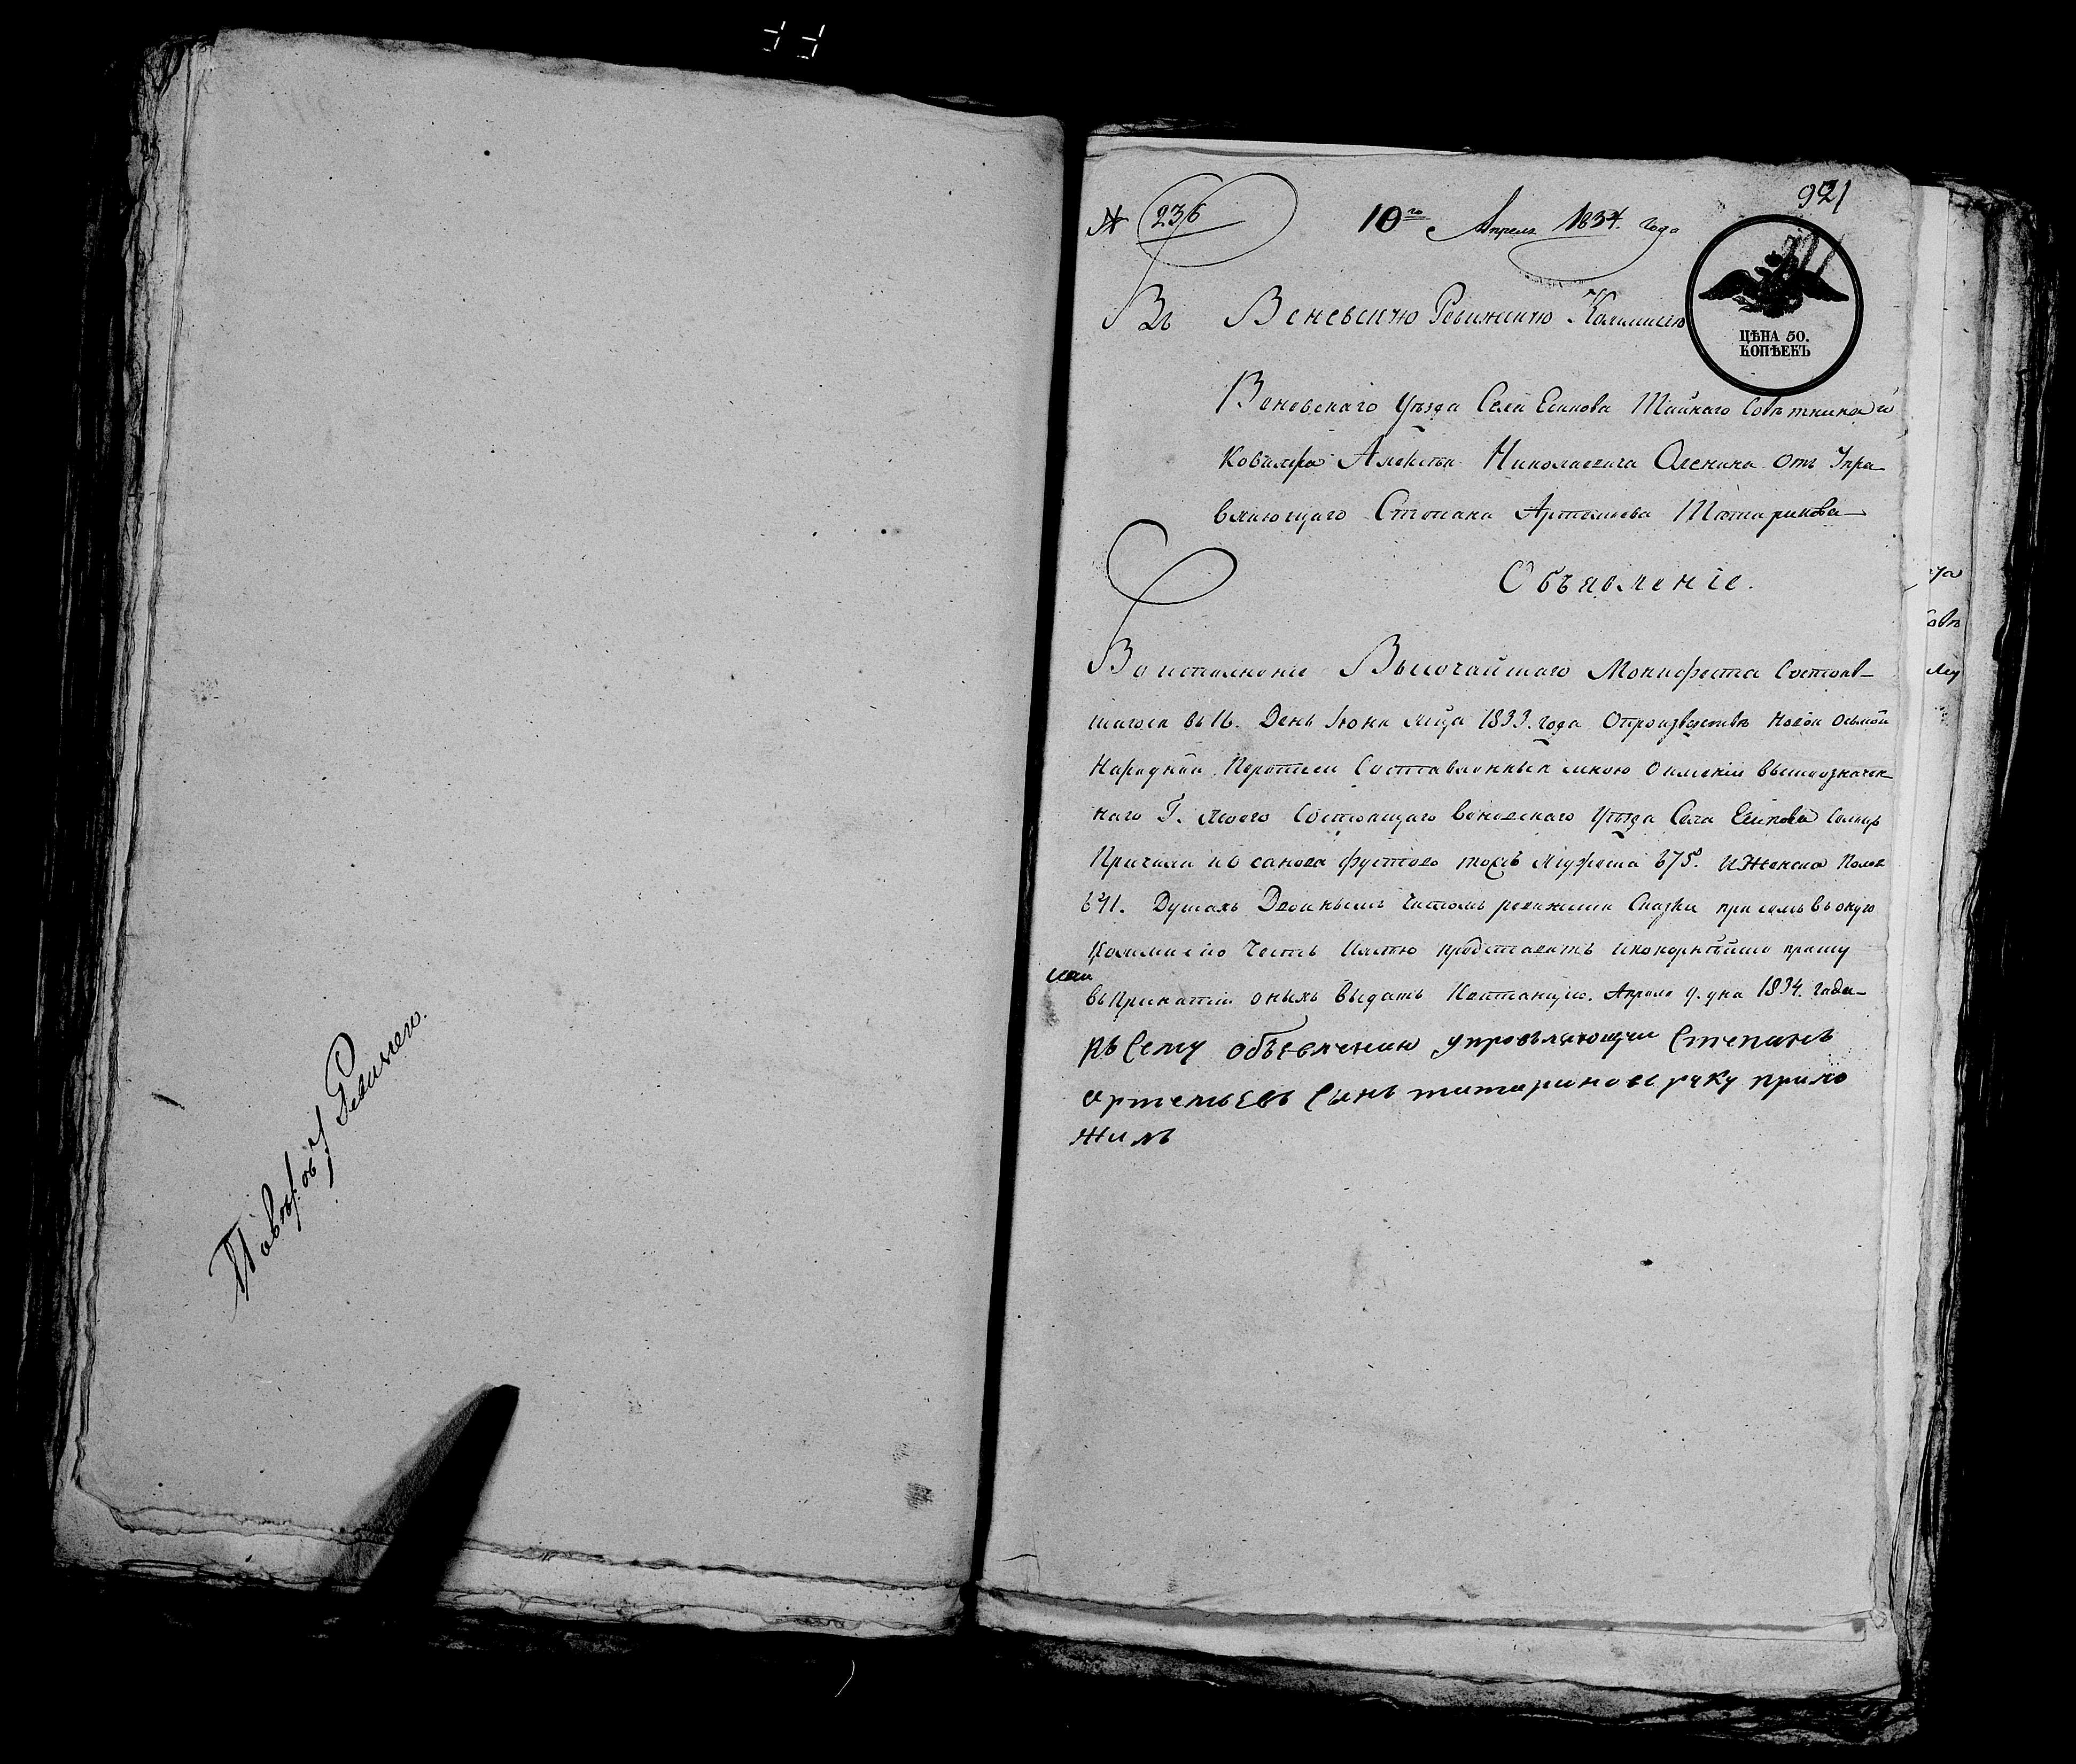 Повѣр. съ Ревизіею.
921
№ 236
10го Апреля 1834. года
Въ Веневскую Ревижскую Коммисію
ЦѢНА 50.
КОПѢЕКЪ
Веневскаго Уѣзда Села Есипова Тайнаго Совѣтника и
Ковалера Алексѣя Николаевича Оленина отъ Упра
вляющаго Степана Артемьева Татаринова
Объявленіе.
Во исполнение Высочайшаго Монифеста Состояв-
шагося въ 16. День Іюня мца 1833. года О произведствѣ новой осьмой
Народной Переписи Составленныя мною о имении вышеозначен-
наго Г. моего Состоящаго веневскаго Уѣзда Села Есипова
тожъ мужеска 675. и Женска Пола
641. Душахъ Двойнымъ Числомъ ревижския Сказки при семъ в оную
Коммисию Честь Имѣю представить и покорнѣйше прошу
въ Принятии оныхъ выдать Квитанцию. Апреля 9. дня 1834. года
къ Сему объевлению упровляющеи Степанъ
артемьевъ Сынъ татариновъ руку прило
жилъ